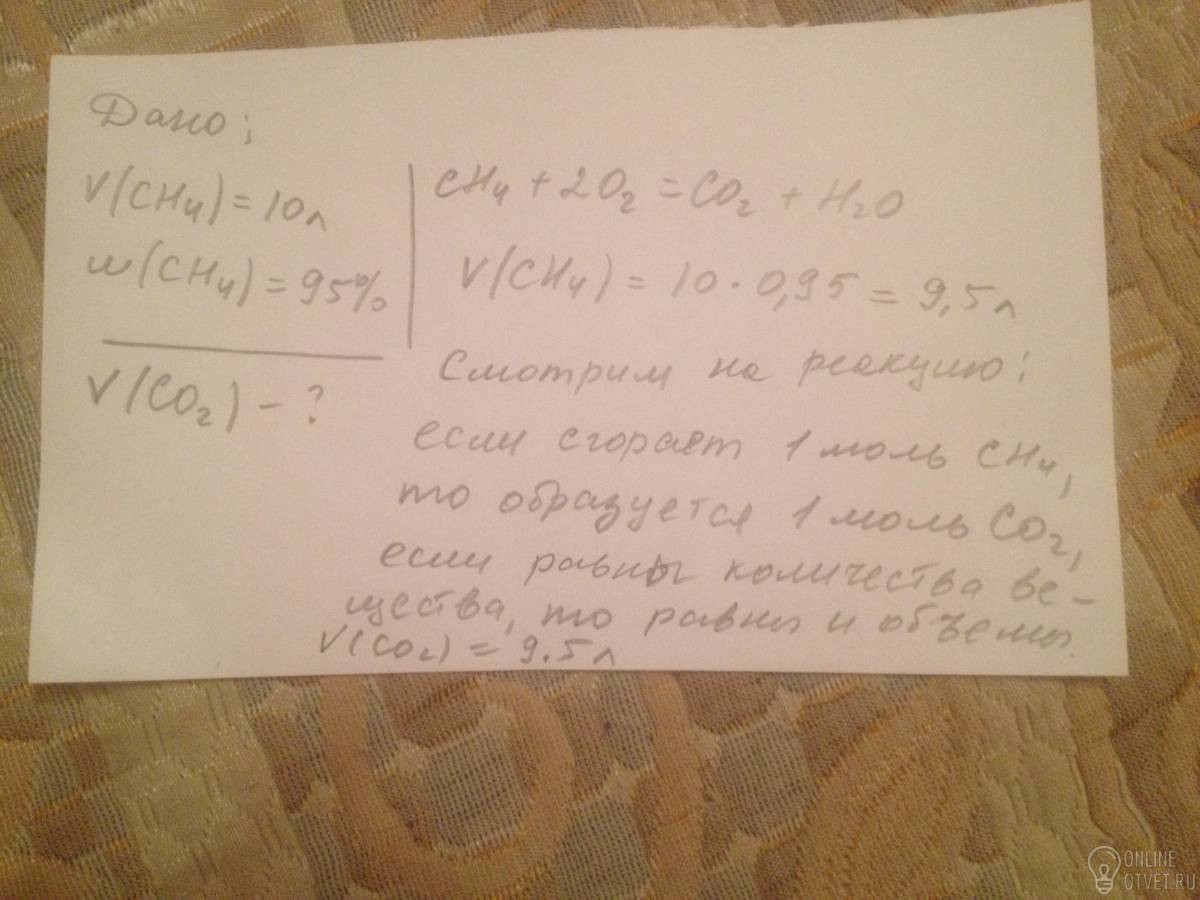 Дано:
V(CH₄) = 10л
w(CH₄) = 95%
V(CO₂) - ?
CH₄ + 2O₂ = CO₂ + H₂O
V(CH₄) = 10 · 0,95 = 9,5л
Смотрим на реакцию:
если сгорает 1 моль CH₄,
то образуется 1 моль CO₂,
если равны количества ве-
щества, то равны и объемы.
V(CO₂) = 9.5л
ONLINE
OTVET.RU